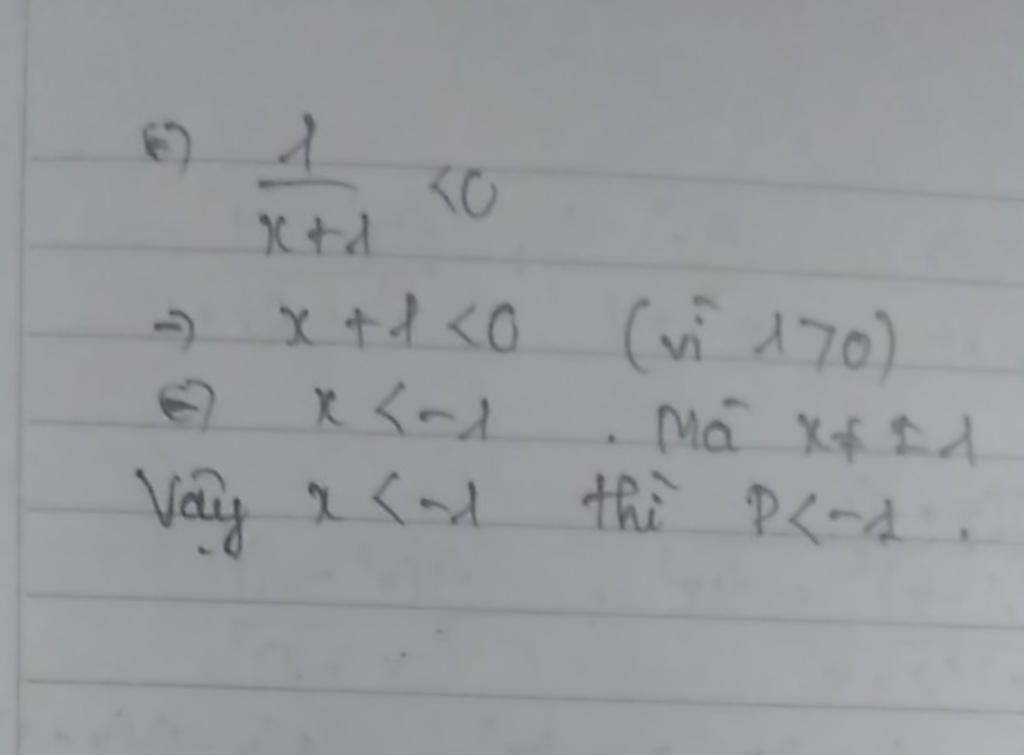 ⇔ 1/(x+1) <0
⇒ x+1<0 (vì 1>0)
⇔ x<-1 . Mà x≠±1
Vậy x<-1 thì P<-1.